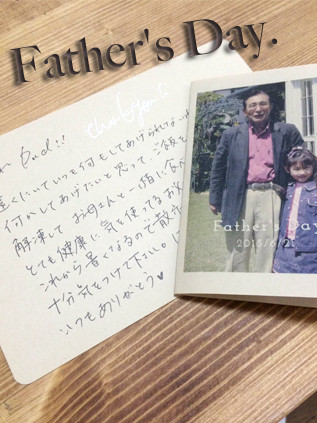 Father's Day.
Dad!!
遠くにいていつも何もしてあげられて
何かしてあげたいと思って ご飯を
解凍して お母さんと一緒に食
とても健康に気を使ってるお父
これから暑くなるので散
十分気をつけて下さい。
いつもありがとう♥
Father's Day
2015/6/21